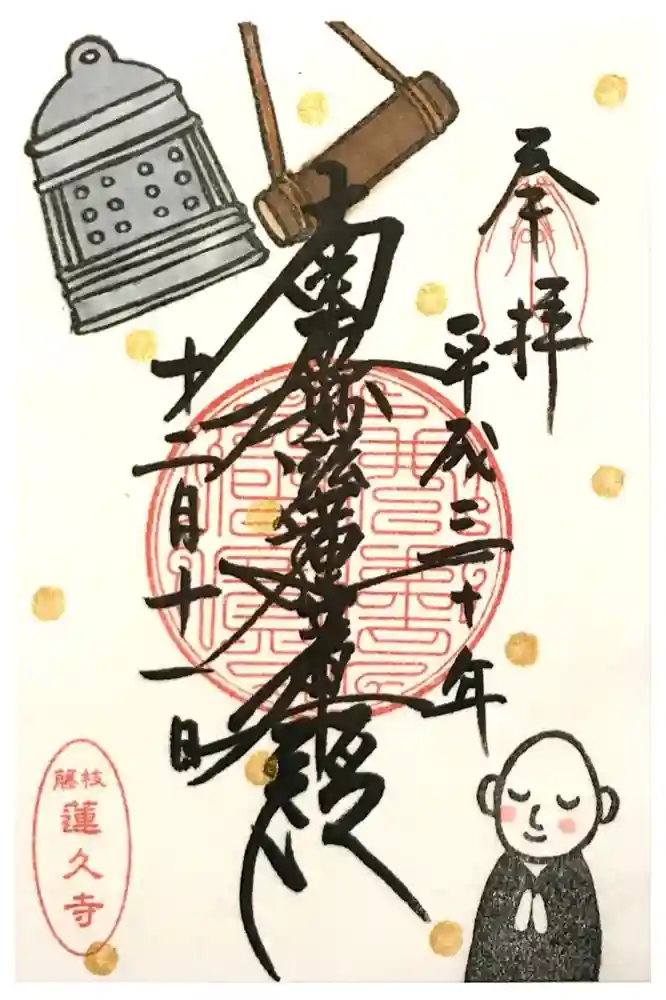 奉拝
平成三十年
南無妙法蓮華経
十二月十一日
藤枝
蓮久寺